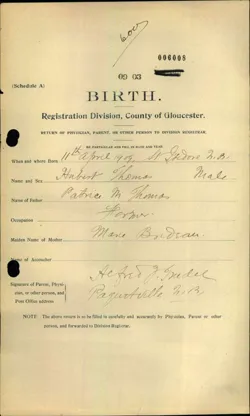 600
000008
69 03
(Schedule A)
BIRTH.
Registration Division, County of Gloucester.
RETURN OF PHYSICIAN, PARENT, OR OTHER PERSON TO DIVISION REGISTRAR.
When and where Born 11th April 1909 St Isidore N.B.
Name and Sex Hubert Thomas Male
Name of Father Patrice M Thomas
Occupation Farmer
Maiden Name of Mother Marie
Name of Accoucher
Signature of Parent, Physician, or other person, and Post Office address
Alfred J.
Paquetville N.B.
NOTE The above return is to be filled in carefully and accurately by Physician, Parent or other person, and forwarded to Division Registrar.